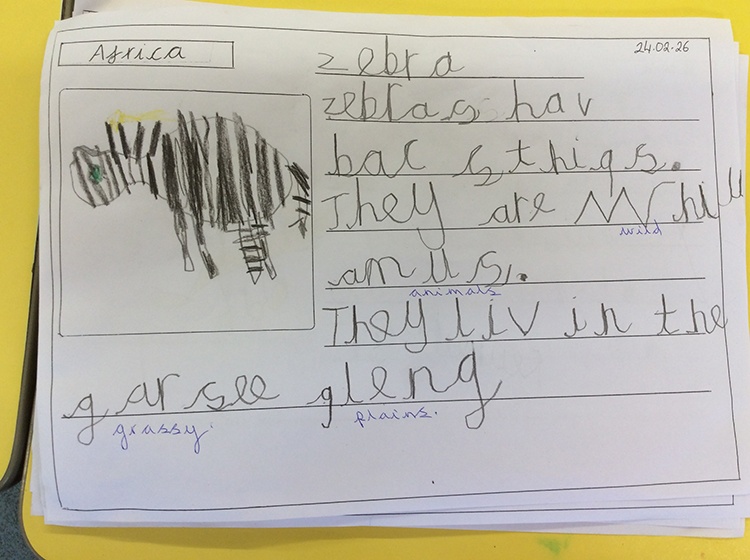 Africa
24.02.26
zebra
zebras hav
bac sthigs.
They are Whill
wild
amus.
animals
They liv in the
garsee gleng
grassy.
plains.